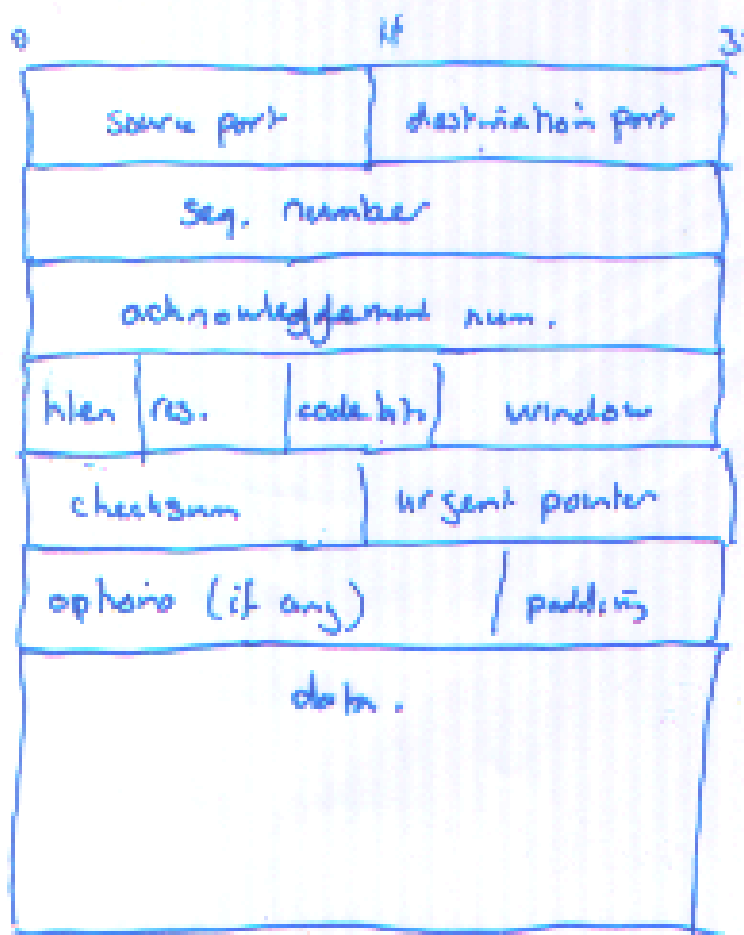 0 16 3
source port destination port
seq. number
acknowledgement num.
hlen res. code bits window
checksum urgent pointer
options (if any) padding
data.